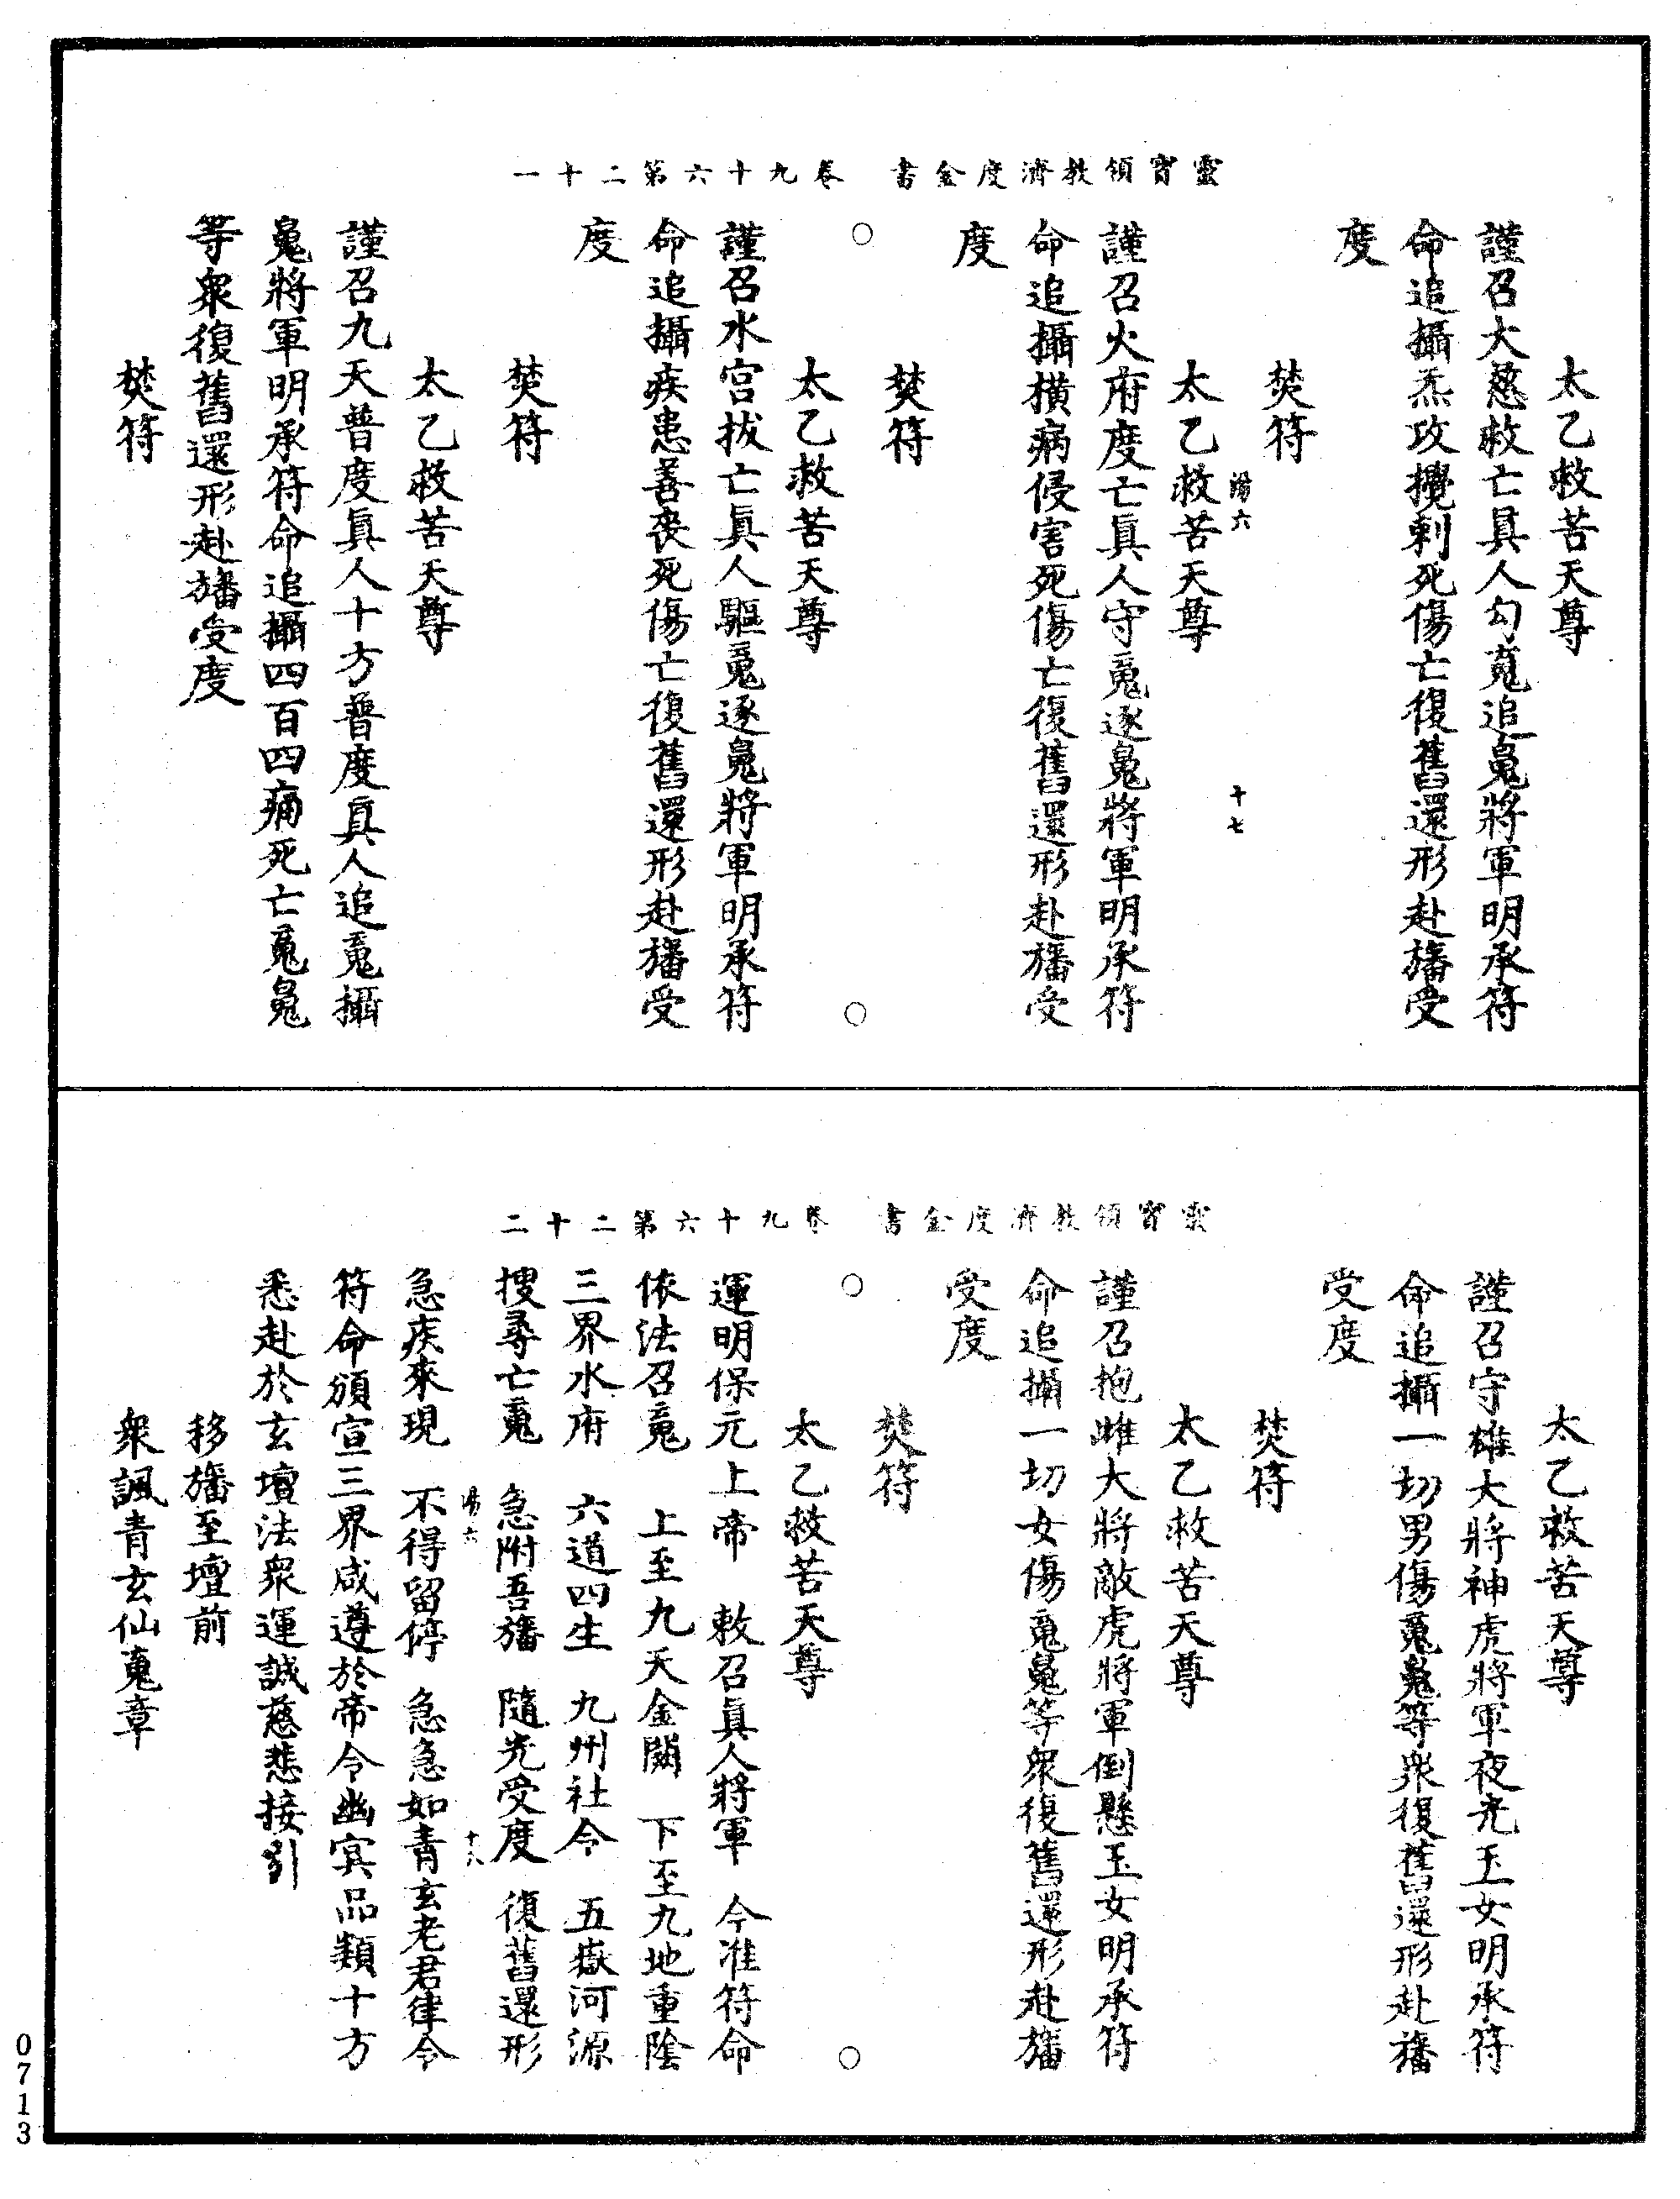 靈寶領教濟度金書　卷九十六第二十一
太乙救苦天尊
謹召大慈救亡眞人勾䰟追魄將軍明承符
命追攝炁攻攪剌死傷亡復舊還形赴旛受
度
焚符
湯六　十七
太乙救苦天尊
謹召火府度亡眞人守䰟逐魄將軍明承符
命追攝橫病侵害死傷亡復舊還形赴旛受
度
焚符
○　○
太乙救苦天尊
謹召水宮拔亡眞人驅䰟逐魄將軍明承符
命追攝疾患善喪死傷亡復舊還形赴旛受
度
焚符
太乙救苦天尊
謹召九天普度眞人十方普度眞人追䰟攝
魄將軍明承符命追攝四百四病死亡䰟魄
等衆復舊還形赴旛受度
焚符
靈寶領教濟度金書　卷九十六第二十二
太乙救苦天尊
謹召守雄大將神虎將軍夜光玉女明承符
命追攝一切男傷䰟魄等衆復舊還形赴旛
受度
焚符
太乙救苦天尊
謹召抱雌大將敵虎將軍倒懸玉女明承符
命追攝一切女傷䰟魄等衆復舊還形赴旛
受度
焚符
○　○
太乙救苦天尊
運明保元上帝　敕召眞人將軍　今准符命
依法召䰟　上至九天金闕　下至九地重陰
三界水府　六道四生　九州社令　五嶽河源
搜尋亡䰟　急附吾旛　隨光受度　復舊還形
湯六　十八
急疾來現　不得留停　急急如青玄老君律令
符命頒宣三界咸遵於帝令幽冥品類十方
悉赴於玄壇法衆運誠慈悲接引
移旛至壇前
衆諷青玄仙䰟章
0713